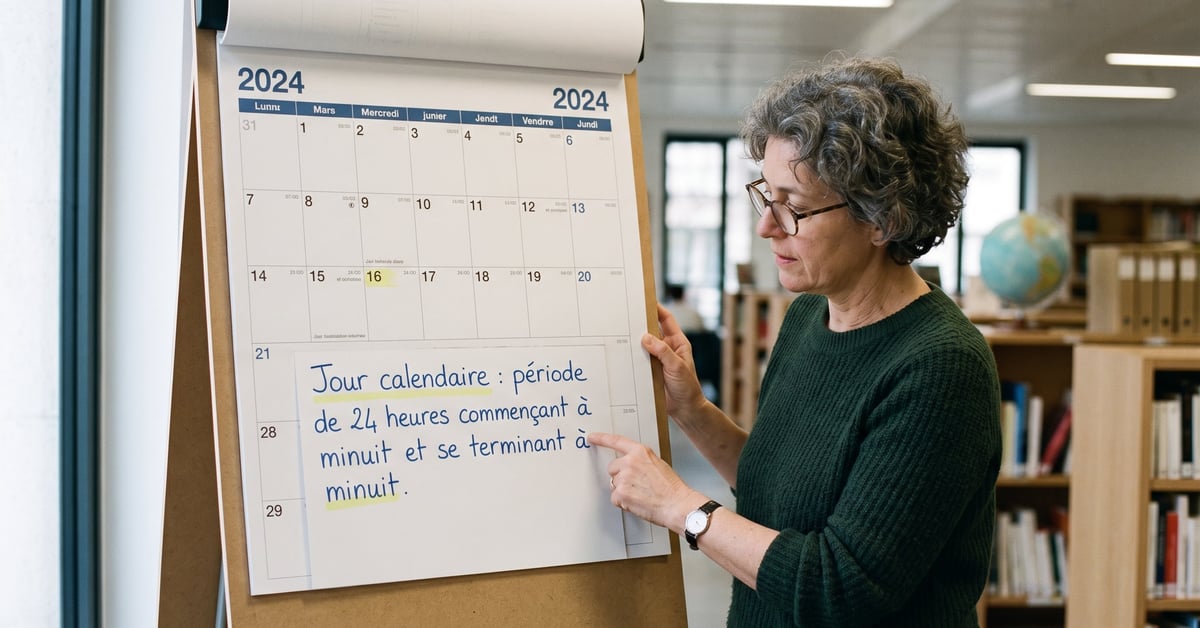 2024
2024
Lunnı Mars Mercredi junıer Jendt Vendrre Jundi
31 1 2 3 4 5 6
7 8 9 10 11 12 13
14 15 16 17 18 19 20
21
28
29
Jour calendaire : période
de 24 heures commençant à
minuit et se terminant à
minuit.